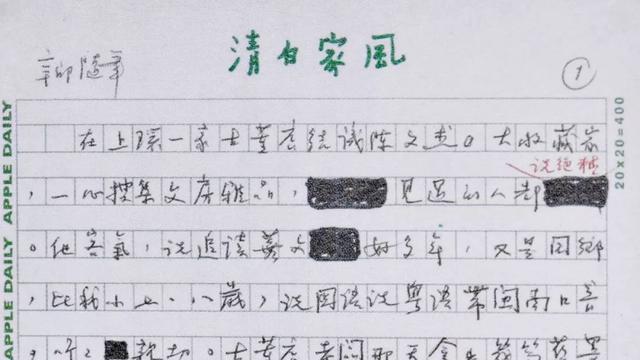 清白家風
辛卯隨筆
1
在上環一家古董店結識陳文杰。大收藏家
說絕種
，一心搜集文房雅品，見過的人都
。他客氣，說追讀 文 好多年，又是同鄉
，比我小七、八歲，說國語說粵語帶閩南口音
親切。古董店老闆那天
APPLE DAILY APPLE DAILY
20×20=400